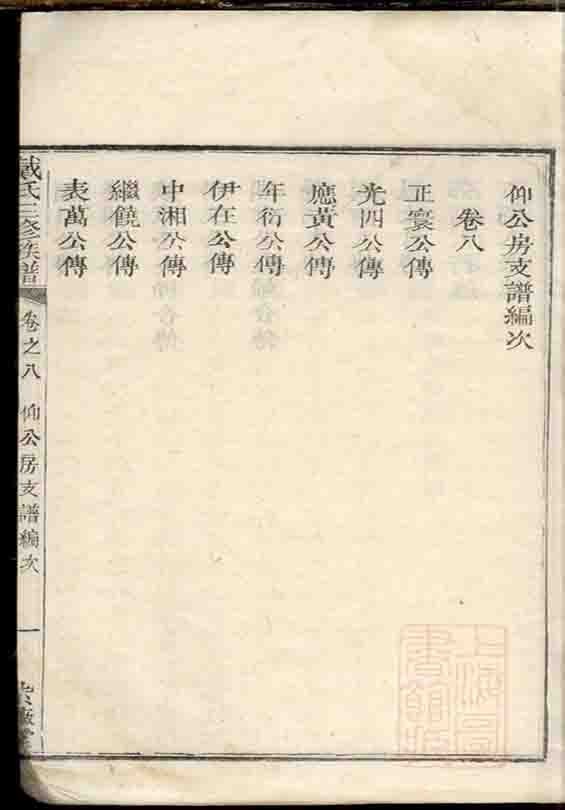 仰公房支譜編次
卷八
正寰公傳
光四公傳
應黃公傳
年衍公傳
伊在公傳
中湘公傳
繼饒公傳
表萬公傳
戴氏三修族譜
卷之八
仰公房支譜編次
一